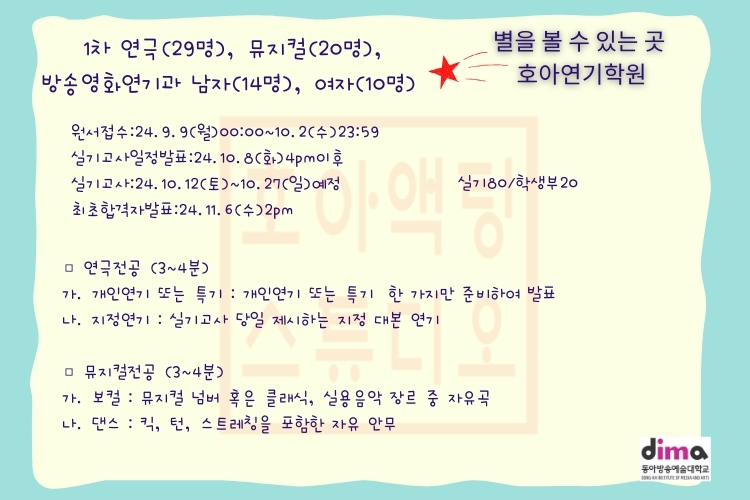 1차 연극(29명), 뮤지컬(20명),
방송영화연기과 남자(14명), 여자(10명)
별을 볼 수 있는 곳
호아연기학원
원서접수:24.9.9(월)00:00~10.2(수)23:59
실기고사일정발표:24.10.8(화)4pm이후
실기고사:24.10.12(토)~10.27(일)예정
실기80/학생부20
최초합격자발표:24.11.6(수)2pm
□ 연극전공 (3~4분)
가. 개인연기 또는 특기 : 개인연기 또는 특기 한 가지만 준비하여 발표
나. 지정연기 : 실기고사 당일 제시하는 지정 대본 연기
□ 뮤지컬전공 (3~4분)
가. 보컬 : 뮤지컬 넘버 혹은 클래식, 실용음악 장르 중 자유곡
나. 댄스 : 킥, 턴, 스트레칭을 포함한 자유 안무
호아액팅
스튜디오
dima
동아방송예술대학교
DONG-AH INSTITUTE OF MEDIA AND ARTS